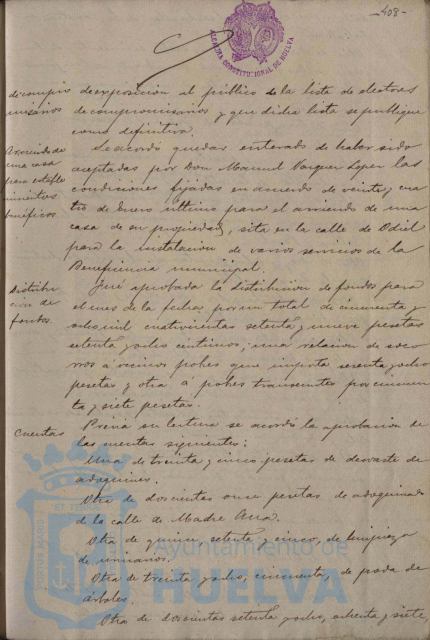 -408-
ALCALDIA CONSTITUCIONAL DE HUELVA
de compro
misarios
de exposicion al público de la lista de electores
de compromisarios y que dicha lista se publique
como definitiva.
Arriendo de
una casa
para estable
cimientos
benéficos
Se acordó quedar enterado de haber sido
aceptadas por Don Manuel Vazquez Lopez las
condiciones fijadas en acuerdo de veinte y cua
tro de Enero último para el arriendo de una
casa de su propiedad, sita en la calle de Odiel
para la instalacion de varios servicios de la
Beneficencia municipal.
Distribu
cion de
fondos.
Fué aprobada la distribucion de fondos para
el mes de la fecha por un total de cincuenta y
ocho mil cuatrocientas setenta y nueve pesetas
setenta y ocho centimos; una relacion de soco
rros a vecinos pobres que importa sesenta y ocho
pesetas y otra á pobres transeuntes por cincuen
ta y siete pesetas.
Cuentas
Previa su lectura se acordó la aprobacion de
las cuentas siguientes:
Una de treinta y cinco pesetas de desvaste de
adoquines.
Otra de doscientas once pesetas de adoquinado
de la calle de Madre Ana.
Otra de quince, setenta y cinco, de limpieza
de urinarios.
Otra de treinta y ocho, cincuenta, de poda de
árboles.
Otra de doscientas setenta y ocho, ochenta y siete,
PORTUS MARIS ET TERRAE
Ayuntamiento de
HUELVA